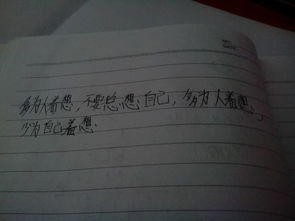 多为人着想,不要总想自己,多为人着想,
少为自己着想.